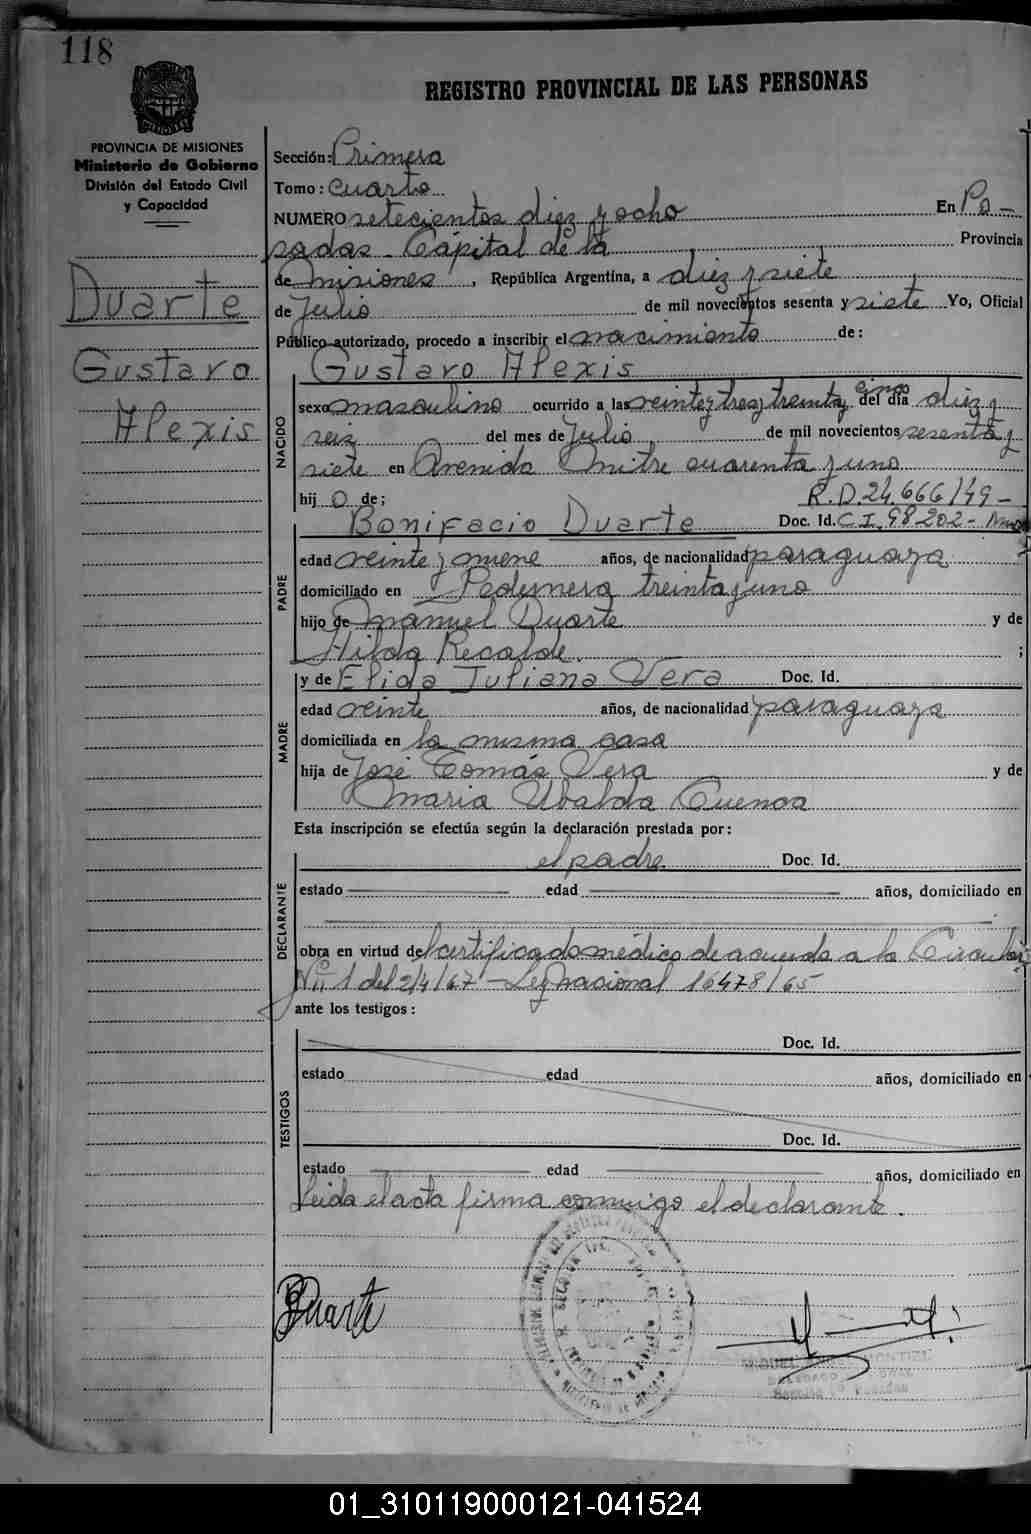 118
REGISTRO PROVINCIAL DE LAS PERSONAS
PROVINCIA DE MISIONES
Ministerio de Gobierno
División del Estado Civil
y Capacidad
Duarte
Gustavo
Alexis
Sección: Primera
Tomo: cuarto
NUMERO setecientos diez y ocho En Po-
sadas - Cápital de la Provincia
de Misiones, República Argentina, a diez y siete
de Julio de mil novecientos sesenta y siete Yo, Oficial
Público autorizado, procedo a inscribir el nacimiento de:
Gustavo Alexis
NACIDO
sexo masculino ocurrido a las veinte y tres y treinta y cinco del día diez y
seis del mes de Julio de mil novecientos sesenta y
siete en Avenida Mitre cuarenta y uno
hij o de; R.D. 24.666/49-
Bonifacio Duarte Doc. Id. C.I. 98202-
PADRE
edad veinte y nueve años, de nacionalidad paraguaya
domiciliado en Pedernera treinta y uno
hijo de Manuel Duarte y de
Hilda Recalde. ;
y de Elida Juliana Vera Doc. Id.
MADRE
edad veinte años, de nacionalidad paraguaya
domiciliada en la misma casa
hija de José Tomás Vera y de
Maria Ubalda Cuenca
Esta inscripción se efectúa según la declaración prestada por:
el padre. Doc. Id.
DECLARANTE
estado edad años, domiciliado en
obra en virtud del certificado médico de acuerdo a la Circular
Nº 1 del 2/4/67 - Ley nacional 16478/65
ante los testigos:
TESTIGOS
Doc. Id.
estado edad años, domiciliado en
Doc. Id.
estado edad años, domiciliado en
Leida el acta firma conmigo el declarante.
BDuarte
01_310119000121-041524